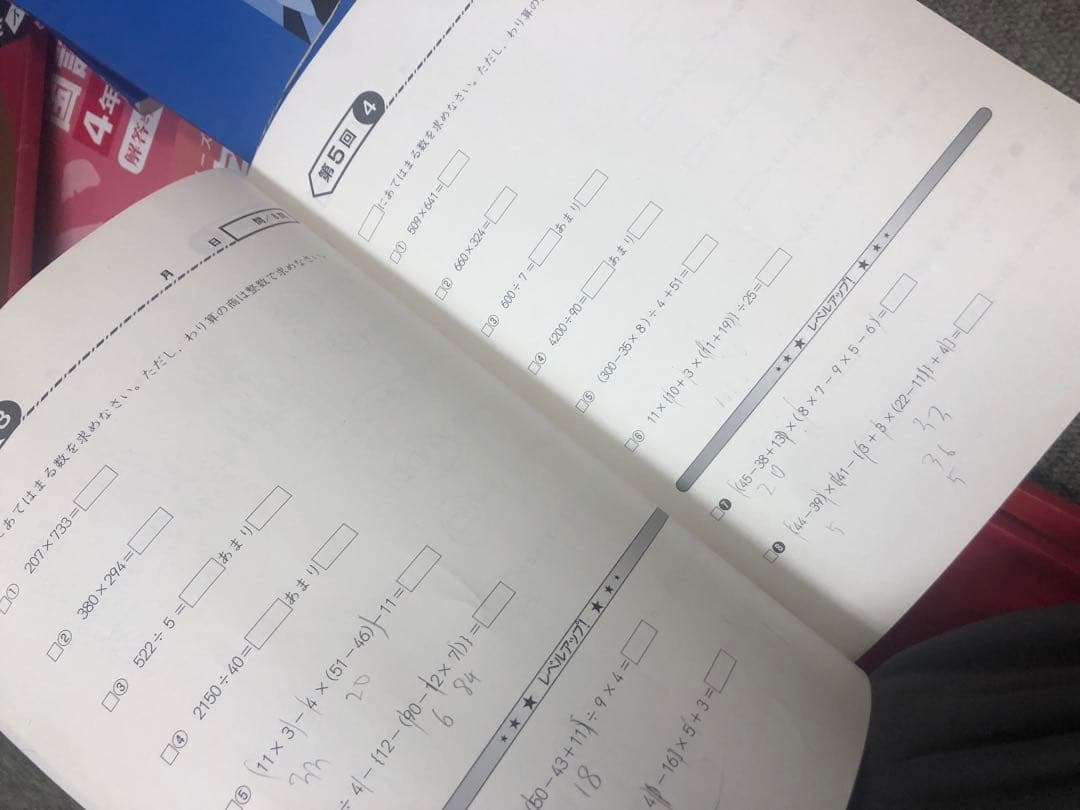 4年
解答
第5回 4
□にあてはまる数を求めなさい。ただし、わり算の
① 509×641=□
② 660×324=□
③ 600÷7=□あまり□
④ 4200÷90=□あまり□
⑤ (300−35×8)÷4+51=□
⑥ 11×{10+3×(11+19)}÷25=□
★★★ レベルアップ! ★★★
❼ (45−38+13)×(8×7−9×5−6)=□
20
❽ (44−39)×{41−{3+3×(22−11)}+4}=□
5
33
36
5
3
月 日
問/8問
にあてはまる数を求めなさい。ただし、わり算の商は整数で求めなさい。
① 207×733=□
② 380×294=□
③ 522÷5=□あまり□
④ 2150÷40=□あまり□
⑤ (11×3)−4×(51−46)−11=□
33
20
÷4−{12−(90−12×7)}=□
6 84
★★★ レベルアップ! ★★★
50−43+11)÷9×4=□
18
−16)×5+3=□